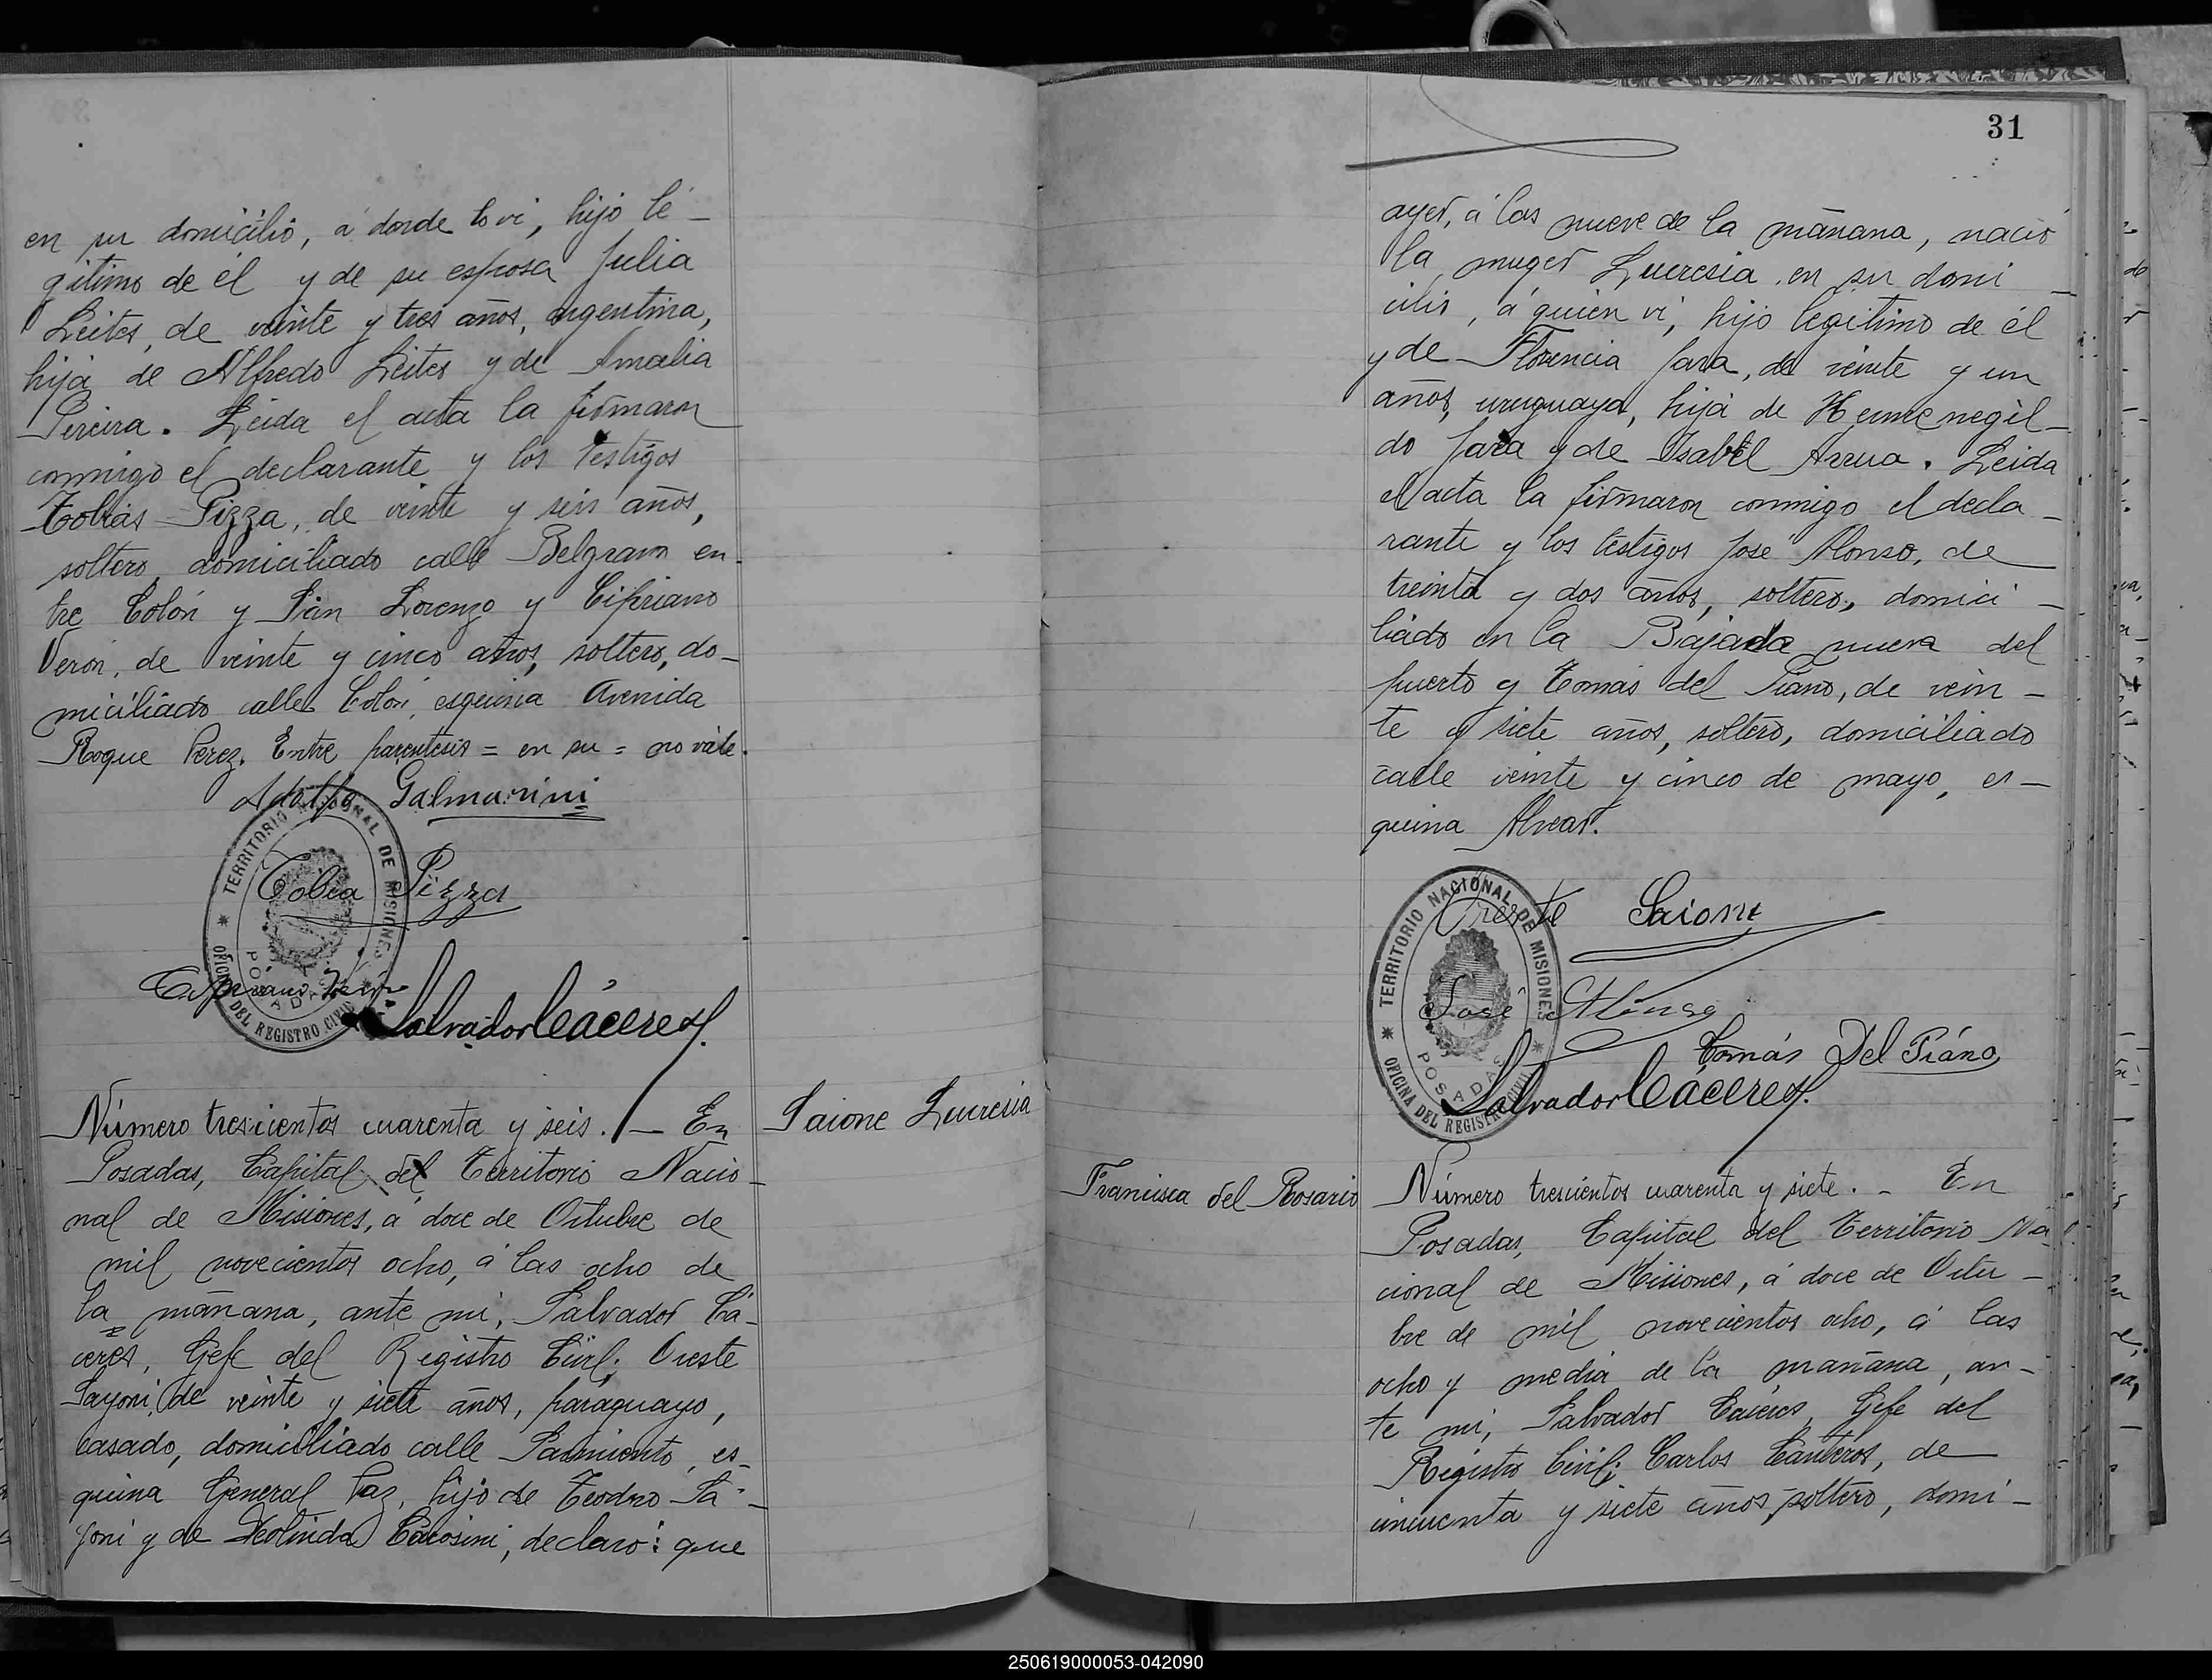 en su domicilio, á donde lo vi, hijo le-
gitimo de él y de su esposa Julia
Leites, de veinte y tres años, argentina,
hija de Alfredo Leites y de Amalia
Pereira. Leida el acta la firmaron
conmigo el declarante y los testigos
Tobias Pizza, de veinte y seis años,
soltero, domiciliado calle Belgrano en-
tre Colón y San Lorenzo y Cipriano
Verón, de veinte y cinco años, soltero, do-
miciliado calle Colón, esquina Avenida
Roque Perez. Entre parentesis = en su = no vale.
Adolfo Galmarini
TERRITORIO NACIONAL DE MISIONES
OFICINA DEL REGISTRO CIVIL
POSADAS
Tobia Pizza
Cipriano Verón
Salvador Cáceres
Número trescientos cuarenta y seis. — En
Saione Lucresia
Posadas, Capital del Territorio Nacio-
nal de Misiones, á doce de Octubre de
mil novecientos ocho, á las ocho de
la mañana, ante mi, Salvador Cá-
ceres, Gefe del Registro Civil; Oreste
Sayoni, de veinte y siete años, paraguayo,
casado, domiciliado calle Sarmiento, es-
quina General Paz, hijo de Teodoro Sa-
yoni y de Deolinda Carosini, declaro: que
31
ayer, á las nueve de la mañana, nació
la muger Lucresia en su domi-
cilio, á quien vi, hijo legitimo de él
y de Florencia Jara, de veinte y un
años, uruguaya, hija de Hermenegil-
do Jara y de Isabel Arrua. Leida
el acta la firmaron conmigo el decla-
rante y los testigos José Alonso, de
treinta y dos años, soltero, domici-
liado en la Bajada nueva del
puerto y Tomás del Piano, de vein-
te y siete años, soltero, domiciliado
calle veinte y cinco de mayo, es-
quina Alvear.
TERRITORIO NACIONAL DE MISIONES
OFICINA DEL REGISTRO CIVIL
POSADAS
Oreste Saione
José Alonso
Tomás Del Piano
Salvador Cáceres
Francisca del Rosario
Número trescientos cuarenta y siete. - En
Posadas, Capital del Territorio Na
cional de Misiones, á doce de Octu-
bre de mil novecientos ocho, á las
ocho y media de la mañana, an-
te mi, Salvador Cáceres, Gefe del
Registro Civil; Carlos Canteros, de
cincuenta y siete años, soltero, domi-
250619000053-042090